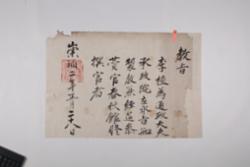 教旨
李為通政大夫
承政院左承旨知
製教兼經筵參
贊官春秋館修
撰官者
崇禎年月日